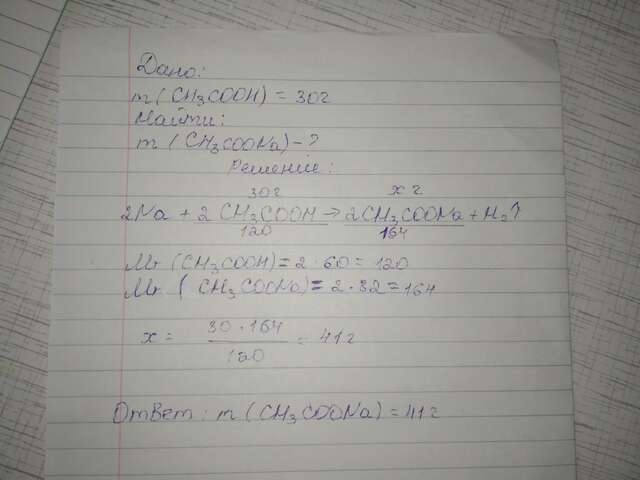 Дано:
m (CH₃COOH) = 30г
Найти:
m (CH₃COONa) - ?
Решение:
30г x г
2Na + 2 CH₃COOH → 2CH₃COONa + H₂↑
120 164
Mr (CH₃COOH) = 2 · 60 = 120
Mr ( CH₃COONa) = 2 · 32 = 164
x = 30 · 164 / 120 = 41г
Ответ: m (CH₃COONa) = 41г